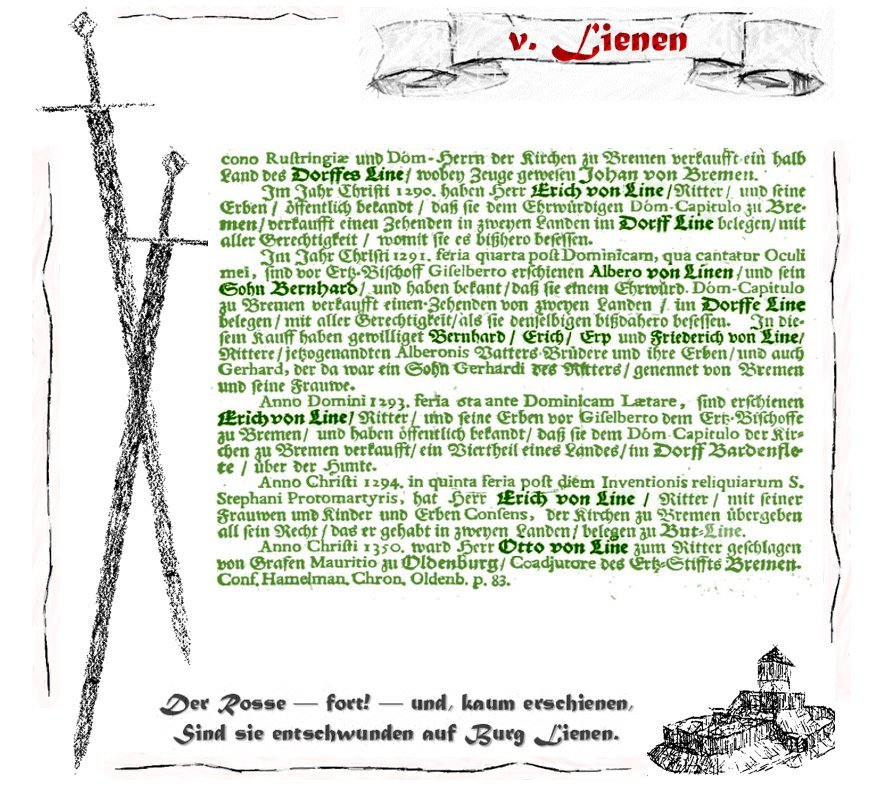 v. Lienen
cono Rustringiæ und Dóm-Herrn der Kirchen zu Bremen verkaufft ein halb
Land des Dorffes Line/ wobey Zeuge gewesen Johan von Bremen.
Im Jahr Christi 1290. haben Herr Erich von Line/Ritter/ und seine
Erben / öffentlich bekandt / daß sie dem Ehrwürdigen Dóm-Capitulo zu Bre-
men/verkaufft einen Zehenden in zweyen Landen im Dorff Line belegen/mit
aller Gerechtigkeit / womit sie es bißhero besessen.
Im Jahr Christi 1291. feria quarta post Dominicam, qua cantatur Oculi
mei, sind vor Ertz-Bischoff Giselberto erschienen Albero von Linen/und sein
Sohn Bernhard/ und haben bekant/daß sie einem Ehrwürd. Dóm-Capitulo
zu Bremen verkaufft einen-Zehenden von zweyen Landen / im Dorffe Line
belegen/ mit aller Gerechtigkeit/als sie denselbigen bißdahero besessen. In die-
sem Kauff haben gewilliget Bernhard/ Erich/ Erp und Friederich von Line/
Rittere/jetzogenandten Alberonis Vatters-Brüdere und ihre Erben/und auch
Gerhard, der da war ein Sohn Gerhardi des Ritters/ genennet von Bremen
und seine Frauwe.
Anno Domini 1293. feria 6ta ante Dominicam Lætare, sind erschienen
Erich von Line/ Ritter/ und seine Erben vor Giselberto dem Ertz-Bischoffe
zu Bremen/ und haben öffentlich bekandt/ daß sie dem Dóm-Capitulo der Kir-
chen zu Bremen verkaufft/ ein Viertheil eines Landes/im Dorff Bardenfle-
te / über der Hunte.
Anno Christi 1294. in quinta feria post diem Inventionis reliquiarum S.
Stephani Protomartyris, hat Herr Erich von Line / Ritter/ mit seiner
Frauwen und Kinder und Erben Consens, der Kirchen zu Bremen übergeben
all sein Recht/ das er gehabt in zweyen Landen/ belegen zu But-Line.
Anno Christi 1350. ward Herr Otto von Line zum Ritter geschlagen
von Grafen Mauritio zu Oldenburg/ Coadjutore des Ertz-Stiffts Bremen.
Conf. Hamelman. Chron. Oldenb. p. 83.
Der Rosse — fort! — und, kaum erschienen,
Sind sie entschwunden auf Burg Lienen.